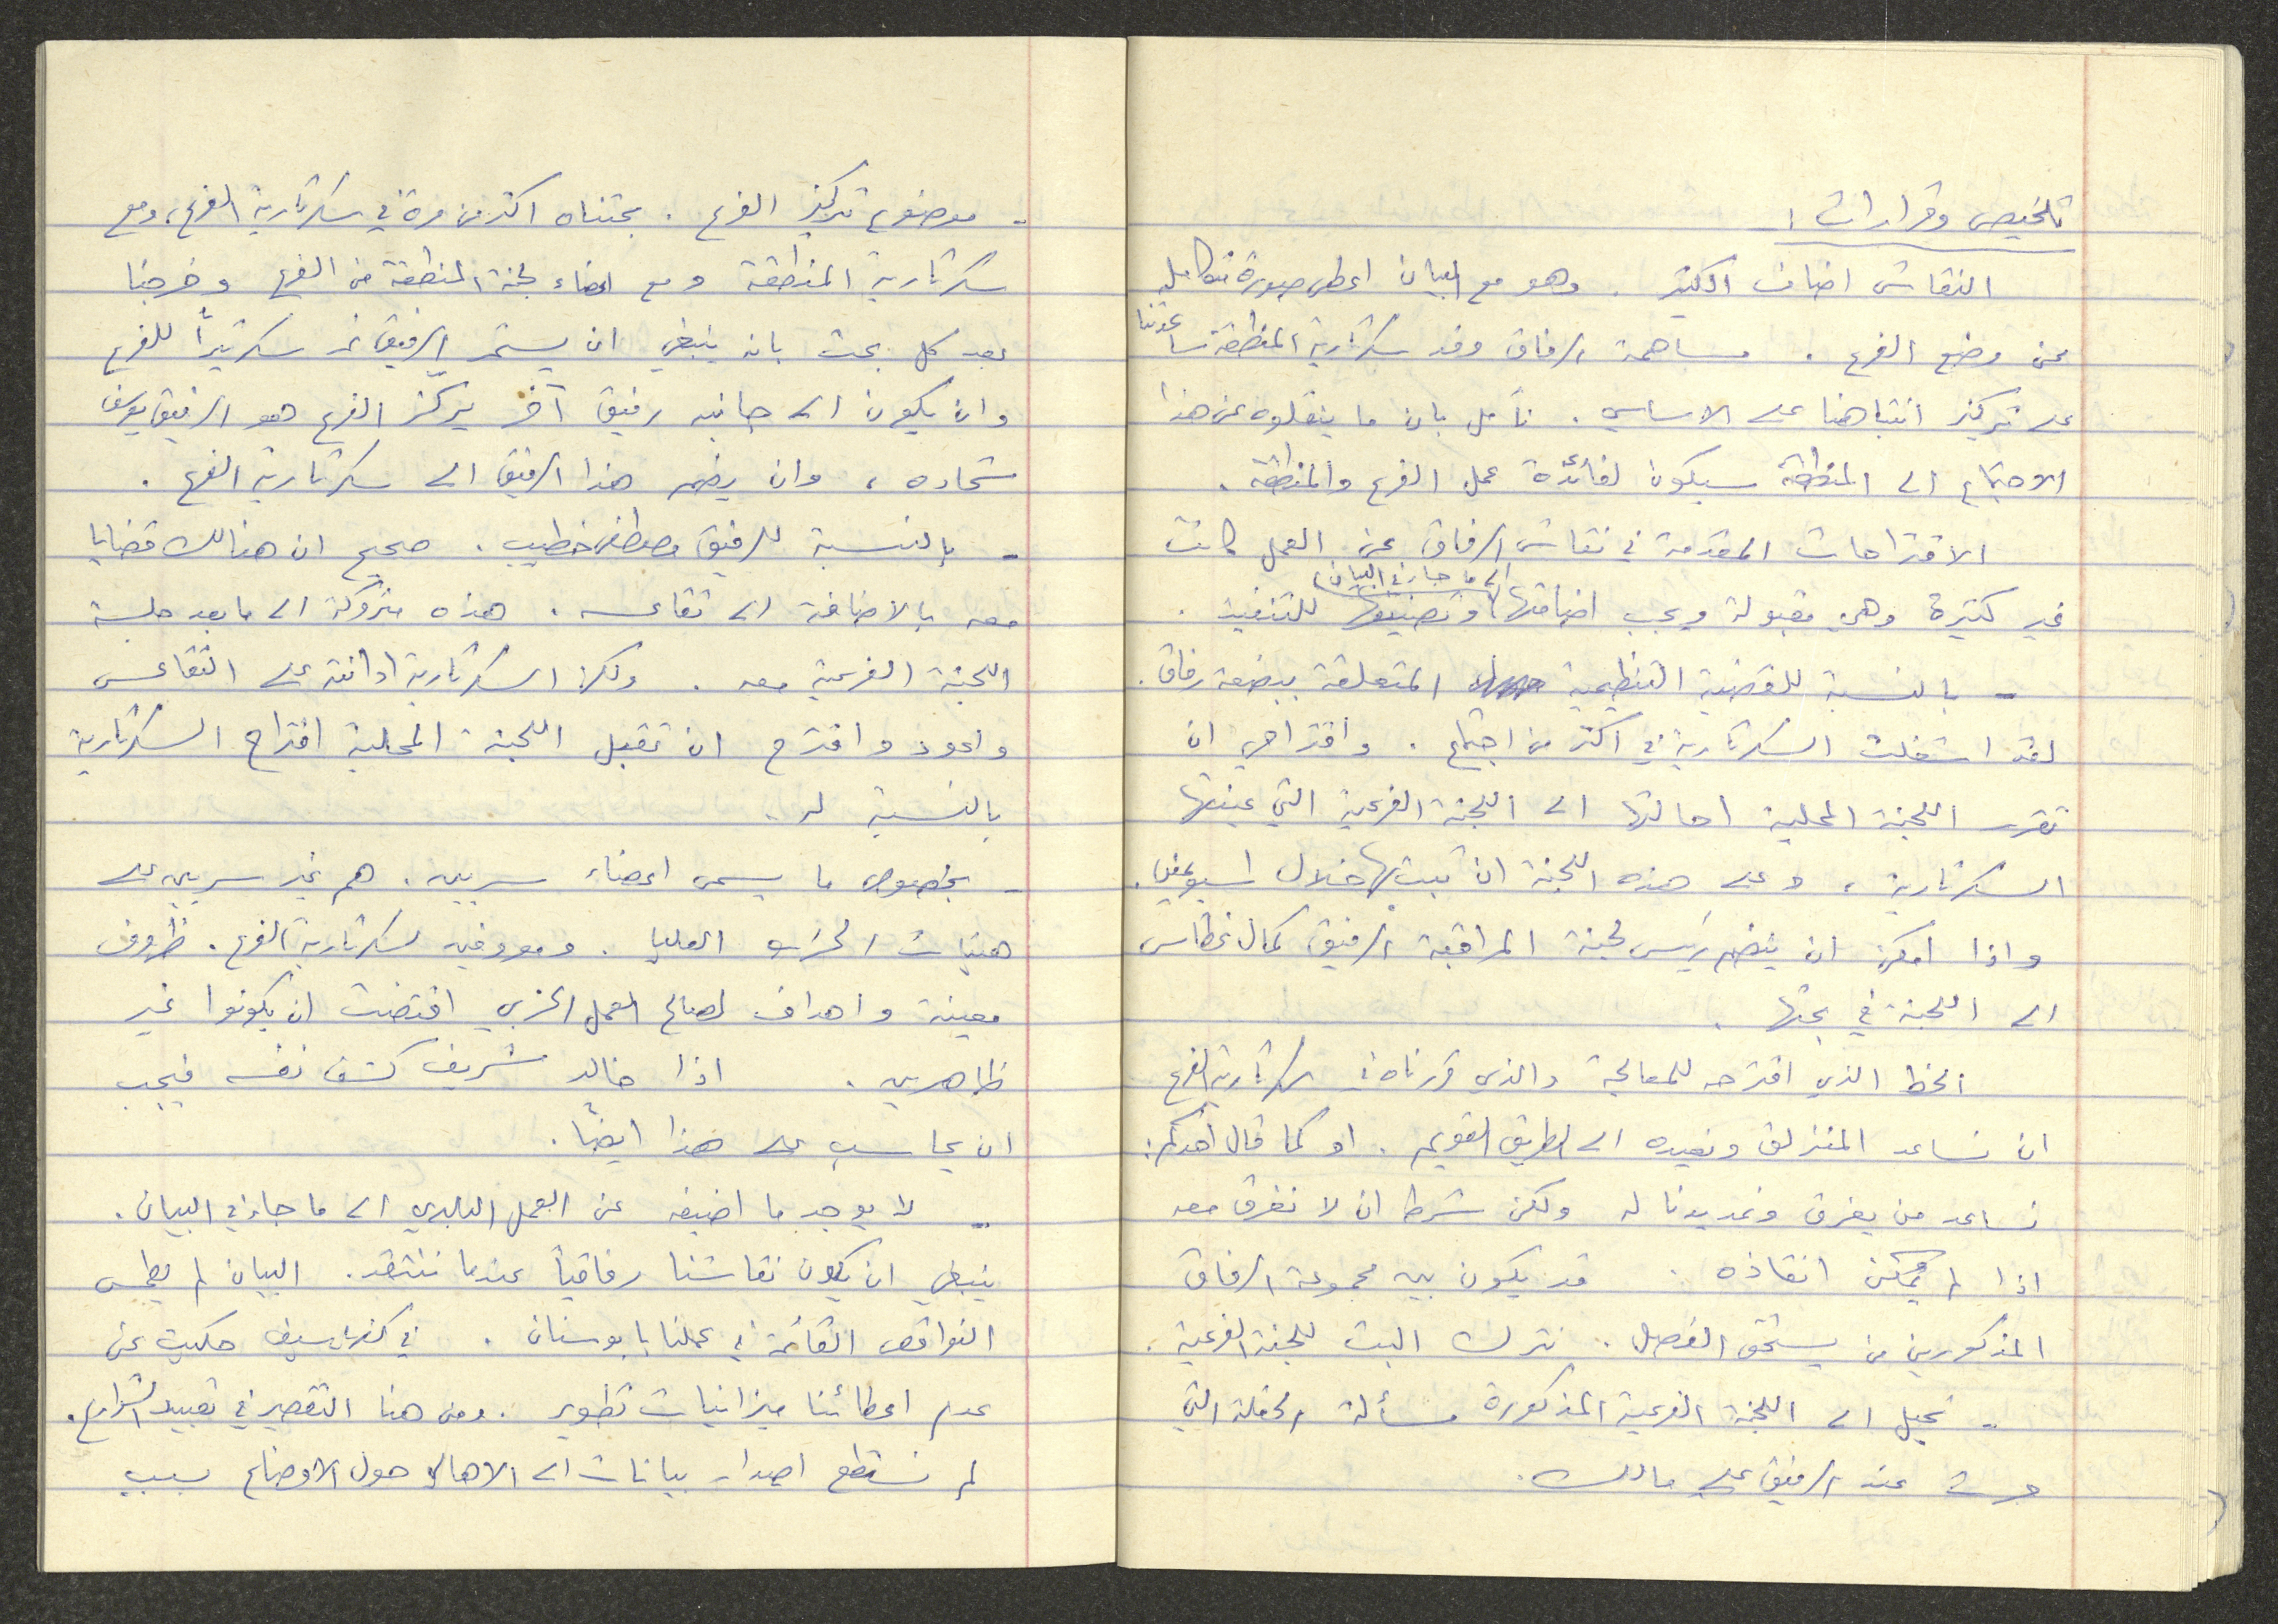 تلخيص وقرارات:
النقاش اضاف الكثير. وهو مع البيان اعطى صورة متكاملة
عن وضع الفرع. مساهمة الرفاق وفد سكرتارية المنطقة ساعدتنا
على تركيز انتباهنا على الاساسي. نأمل بان ما ينقلوه عن هذا
الاجتماع الى المنطقة سيكون لفائدة عمل الفرع والمنطقة.
الاقتراحات المقدمة في نقاش الرفاق عن العمل كانت
غير كثيرة وهي مقبولة ويجب اضافتها (الى ما جاء في البيان) وتصنيفها للتنفيذ.
- بالنسبة للقضية التنظيمية المتعلقة ببضعة رفاق.
لقد اشغلت السكرتارية في اكثر من اجتماع. واقتراحي ان
تقرر اللجنة المحلية احالتها الى اللجنة الفرعية التي عينتها
السكرتارية، وعلى هذه اللجنة ان تبت بها خلال اسبوعين.
واذا امكن ان ينضم رئيس لجنة المراقبة الرفيق كمال غطاس
الى اللجنة في بحثها.
الخط الذي اقترحه للمعالجة والذي قررناه في سكرتارية الفرع
ان نساعد المنزلق ونعيده الى الطريق القويم. او كما قال احدكم:
نساعد من يغرق ونمد يدنا له ولكن شرط ان لا نغرق معه
اذا لم يمكن انقاذه. قد يكون بين مجموعة الرفاق
المذكورين من يستحق الفصل. نترك البت للجنة الفرعية.
- نحيل الى اللجنة الفرعية المذكورة مسألة الحفلة التي
جرت عند الرفيق علي مالك.
- موضوع تركيز الفرع. بحثناه اكثر من مرة في سكرتارية الفرع، ومع
سكرتارية المنطقة ومع اعضاء لجنة المنطقة من الفرع وخرجنا
بعد كل بحث بانه ينبغي ان يستمر الرفيق نمر سكرتيراً للفرع
وان يكون الى جانبه رفيق آخر يركز الفرع هو الرفيق يوسف
شحاده، وان يضم هذا الرفيق الى سكرتارية الفرع.
- بالنسبة للرفيق مصطفى خطيب. صحيح ان هنالك قضايا
معه بالاضافة الى تقاعسه. هذه متروكة الى ما بعد جلسة
اللجنة الفرعية معه. ولكن السكرتارية ادانته على التقاعس
واعود واقترح ان تقبل اللجنة المحلية اقتراح السكرتارية
بالنسبة له.
- بخصوص ما يسمى اعضاء سريين. هم غير سريين على
هيئات الحزب العليا. ومعروفين لسكرتارية الفرع. ظروف
معينة واهداف لصالح العمل الحزبي اقتضت ان يكونوا غير
ظاهرين. اذا خالد شريف كشف نفسه فيجب
ان يحاسب على هذا ايضاً.
- لا يوجد ما اضيفه عن العمل البلدي الى ما جاء في البيان.
ينبغي ان يكون نقاشنا رفاقياً عندما ننتقد. البيان لم يطمس
النواقص القائمة في عملنا بابوسنان. في كفرياسيف حكيت عن
عدم اعطائنا ميزانيات تطوير. ومن هنا التقصير في تعبيد الشوارع.
لم نستطع اصدار بيانات الى الاهالي حول الاوضاع بسبب